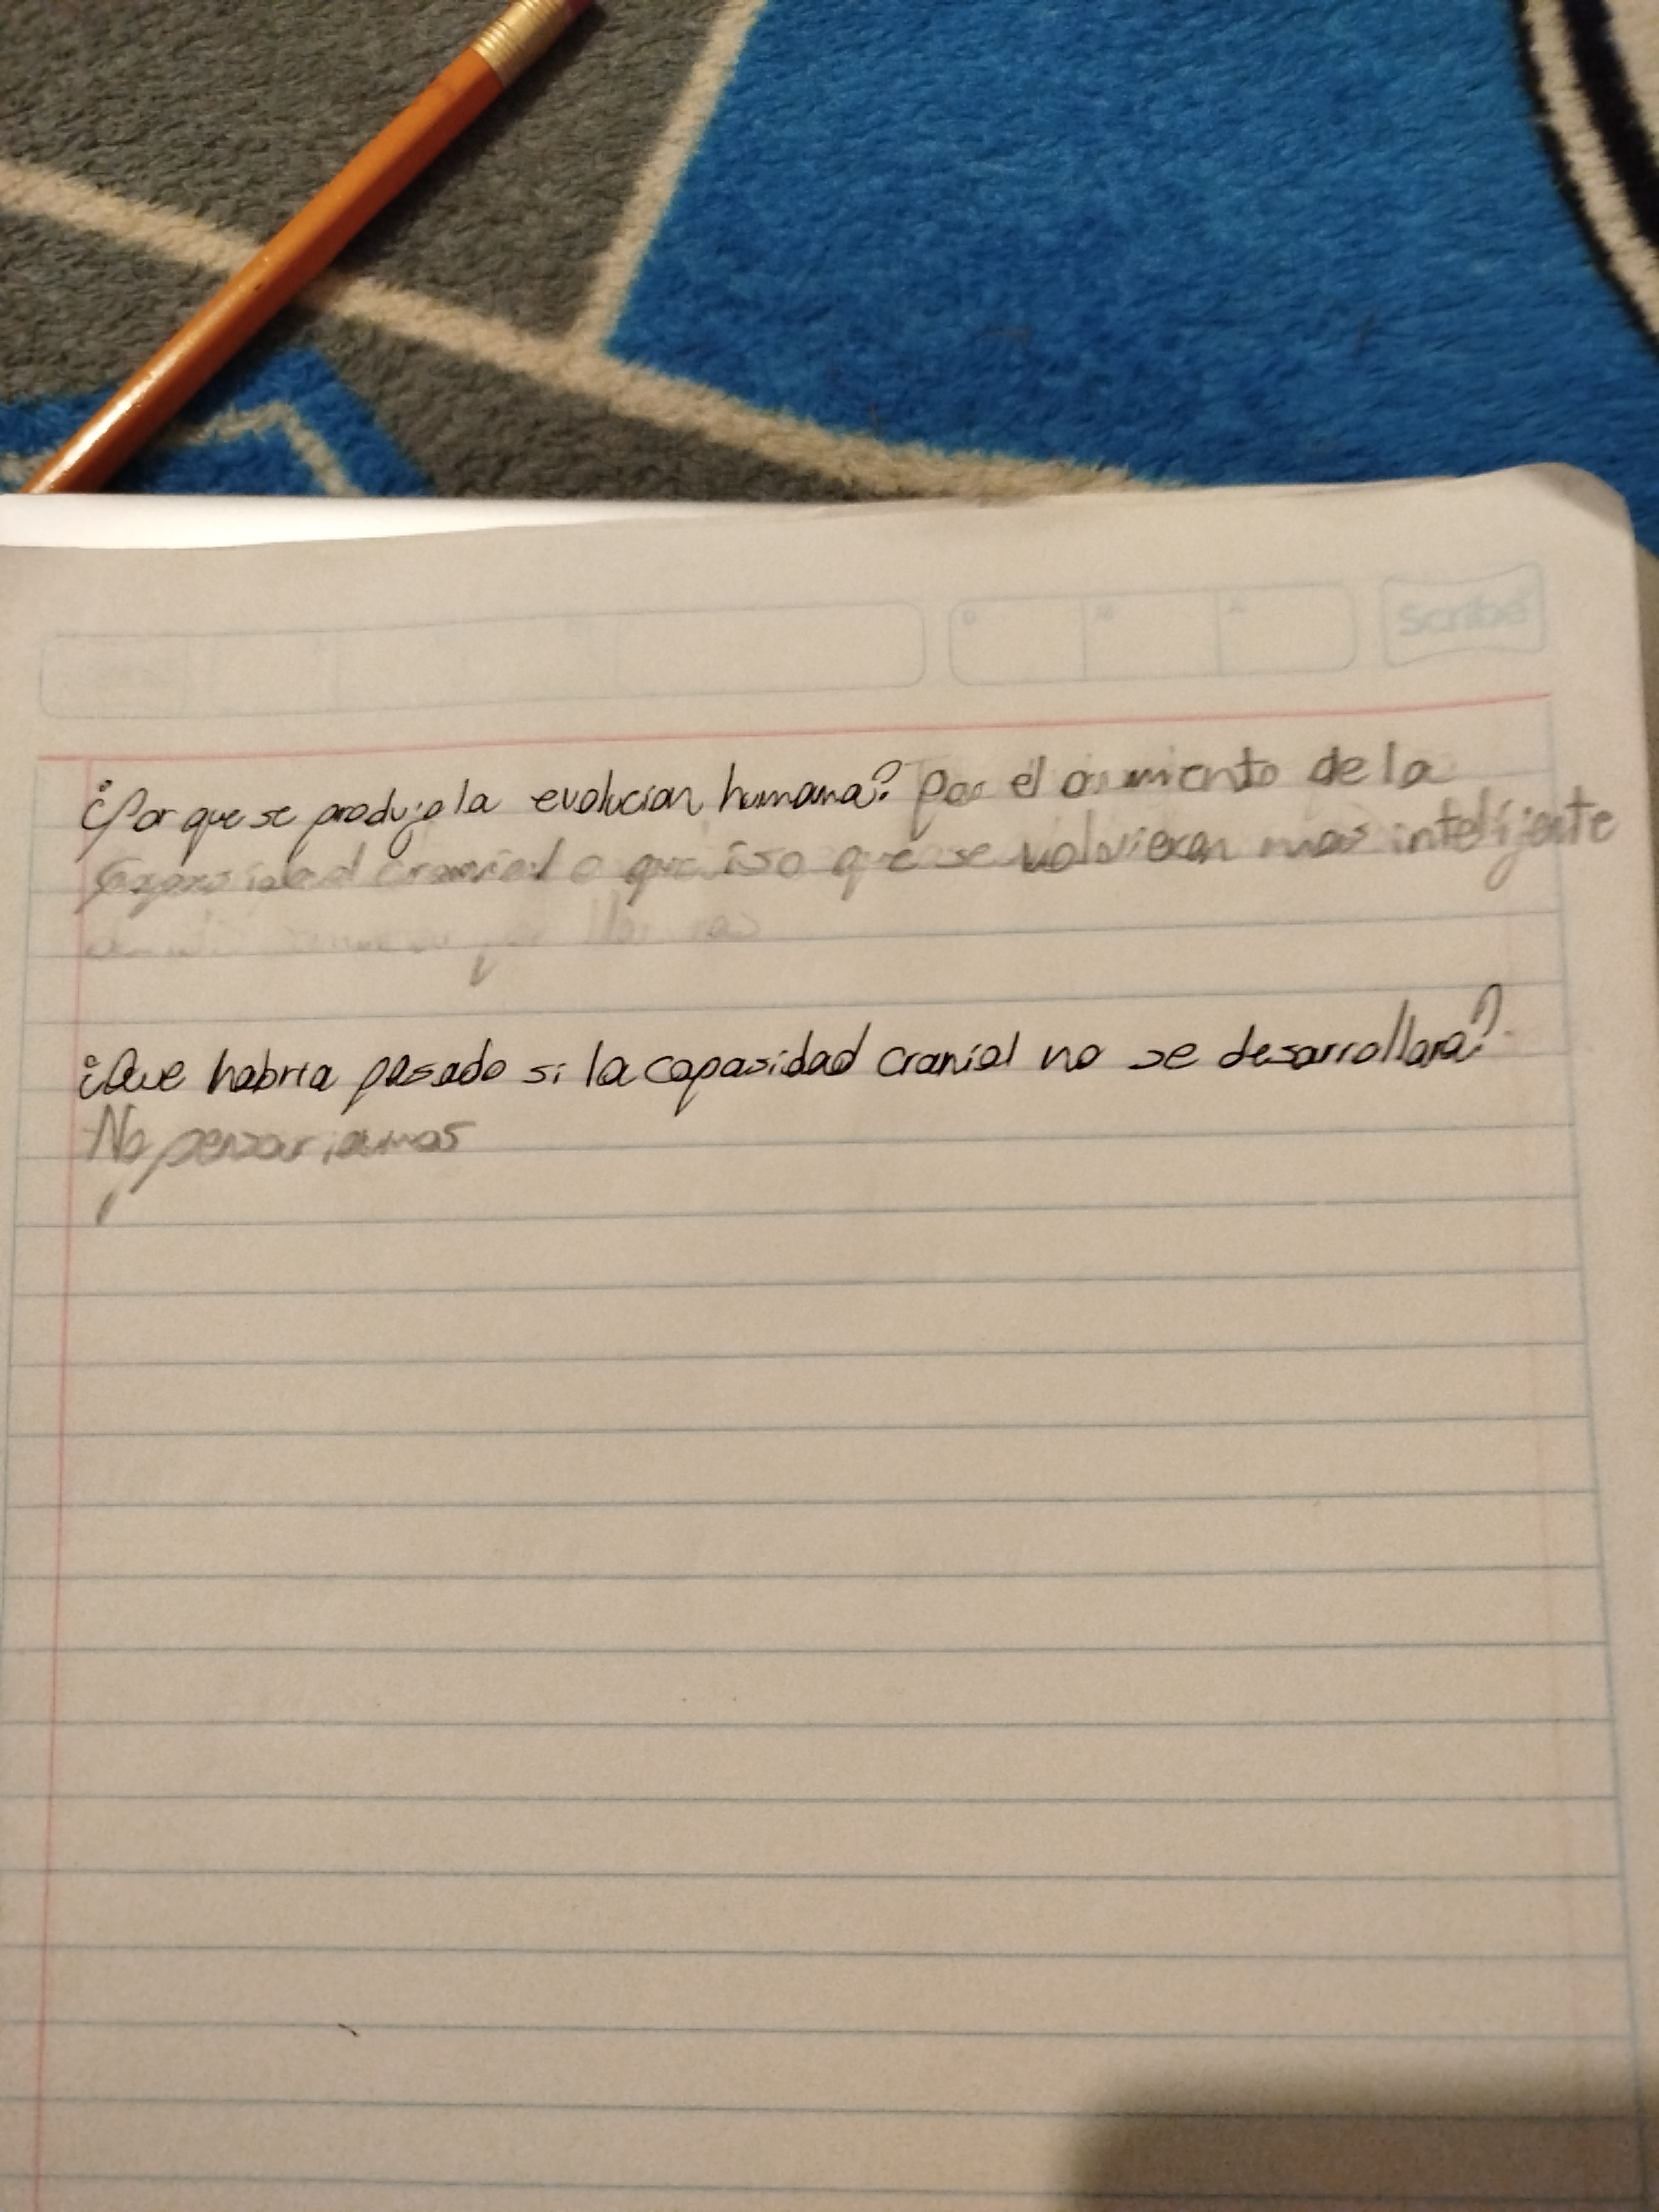 Scribe
D M A
¿Por que se produjo la evolucion humana? Por el aumiento de la
capasidad cranial o que iso que se volvieran mas intelijente
¿Que habria pasado si la capasidad cranial no se desarrollara?
No pensariamos